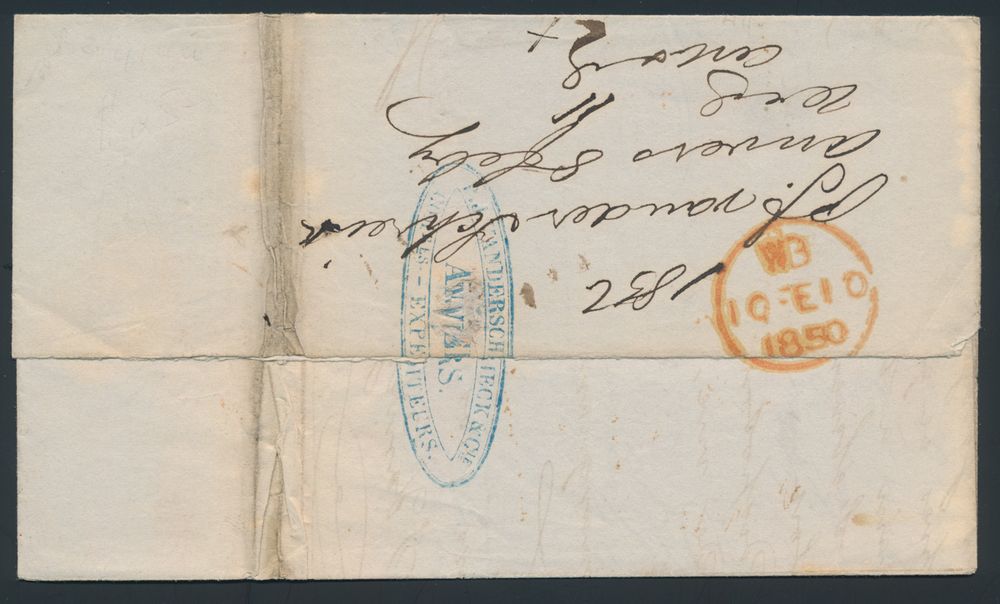 1852
P.J. vanderschrieck
Anvers 8 feby
recd 11
ansd 21
P.J. VANDERSCHRIECK & CIE
ANVERS.
EXPEDITEURS.
WB
10 FE 10
1850